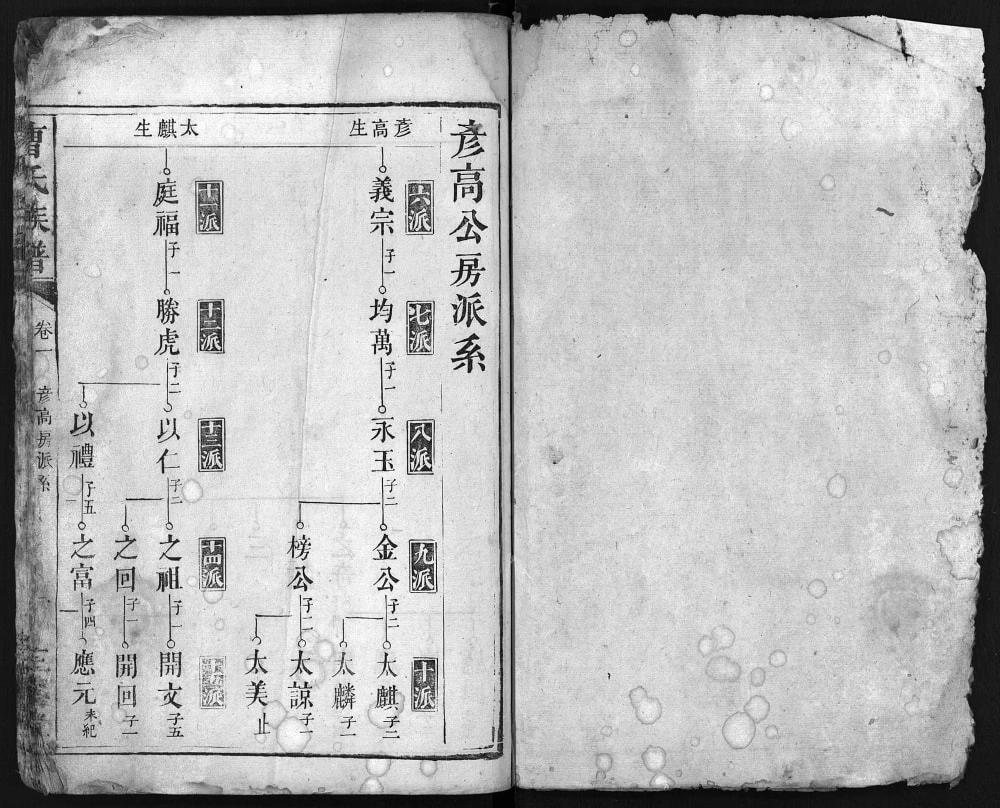 彦高公房派系
彦高生
六派
義宗 子一
七派
均萬 子一
八派
永玉 子二
九派
金公 子二
榜公 子二
十派
太麒 子二
太麟 子一
太諒 子一
太美 止
太麒生
十一派
庭福 子一
十二派
勝虎 子二
十三派
以仁 子二
以禮 子五
十四派
之祖 子一
之回 子一
之富 子四
派
開文 子五
開回 子一
應元 未紀
曹氏族譜
卷一
彦高房派系